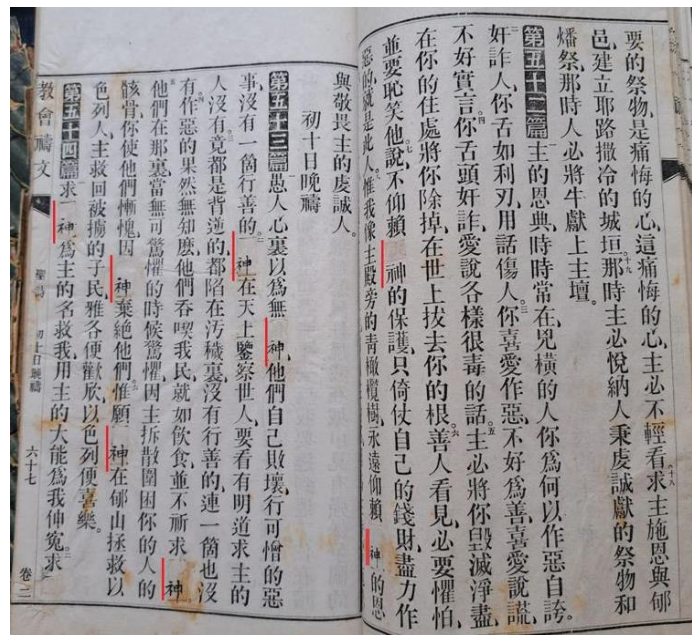 要的祭物、是痛悔的心、這痛悔的心、主必不輕看。十八求主施恩與郇
邑、建立耶路撒冷的城垣。十九那時主必悅納人秉虔誠獻的祭物和
燔祭、那時人必將牛獻上主壇。
第五十二篇 一主的恩典、時時常在、兇橫的人、你爲何以作惡自誇。
奸詐人、你舌如利刃、用話傷人。三你喜愛作惡、不好爲善、喜愛說謊、
不好實言。四你舌頭奸詐、愛說各樣很毒的話。五主必將你毀滅淨盡、
在你的住處、將你除掉、在世上拔去你的根。六善人看見、必要懼怕、
並要恥笑他、說、七不仰賴 神的保護、只倚仗自己的錢財、盡力作
惡的、就是此人。八惟我像主殿旁的青橄欖樹、永遠仰賴 神的恩
與敬畏主的虔誠人。
初十日晚禱
第五十三篇 一愚人心裏以爲無 神、他們自己敗壞、行可憎的惡
事、沒有一箇行善的。二 神在天上鑒察世人、要看有明道求主的
人沒有。三竟都是背逆的、都陷在汚穢裏、沒有行善的、連一箇也沒
有。四作惡的果然無知麽、他們吞喫我民、就如飲食、並不祈求 神。
五他們在那裏當無可驚懼的時候驚懼、因主拆散圍困你的人的
骸骨、你使他們慚愧、因 神棄絕他們。六惟願 神在郇山拯救以
色列人、主救回被擄的子民、雅各便歡欣、以色列便喜樂。
第五十四篇 一求 神爲主的名救我、用主的大能爲我伸冤。二求
教會禱文
聖詩
初十日晚禱
六十七
卷二